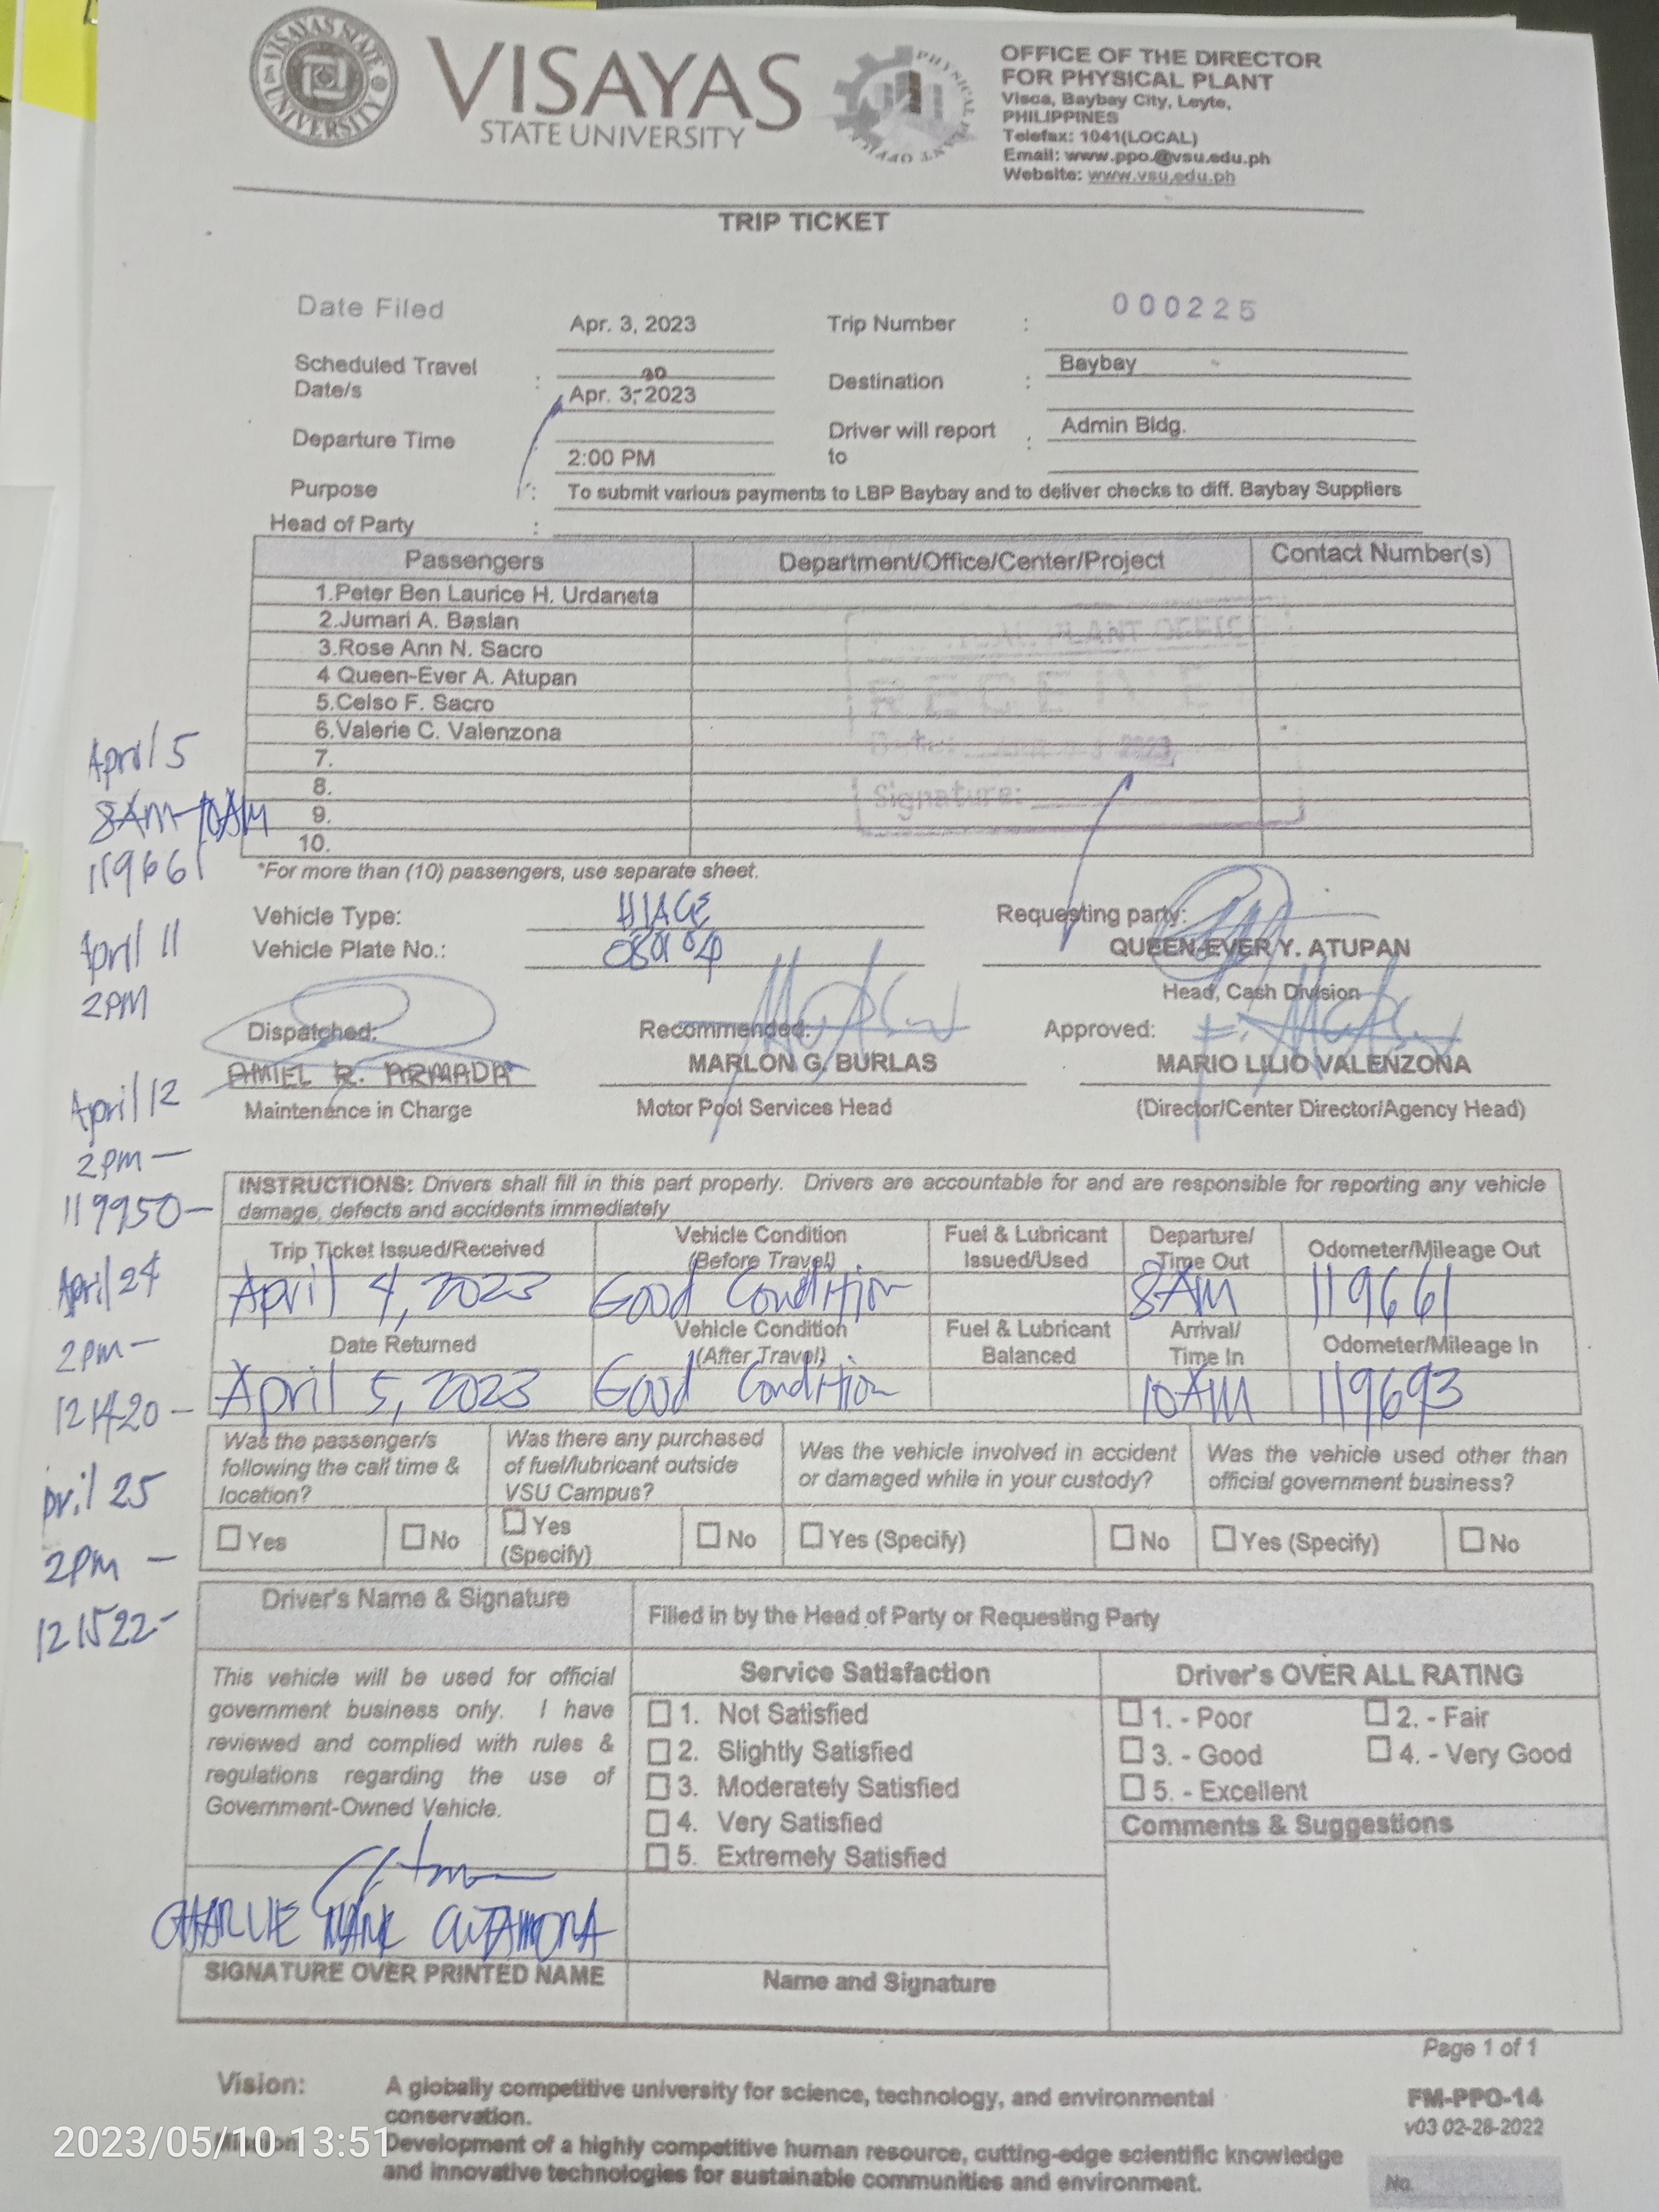 VISAYAS STATE UNIVERSITY
VISAYAS
STATE UNIVERSITY
OFFICE OF THE DIRECTOR
FOR PHYSICAL PLANT
Visca, Baybay City, Leyte,
PHILIPPINES
Telefax: 1041(LOCAL)
Email: www.ppo.@vsu.edu.ph
Website: www.vsu.edu.ph
TRIP TICKET
Date Filed Apr. 3, 2023 Trip Number : 000225
Scheduled Travel Date/s : 30 Apr. 3, 2023 Destination : Baybay
Departure Time 2:00 PM Driver will report to : Admin Bldg.
Purpose : To submit various payments to LBP Baybay and to deliver checks to diff. Baybay Suppliers
Head of Party :
Passengers Department/Office/Center/Project Contact Number(s)
1.Peter Ben Laurice H. Urdaneta
2.Jumari A. Baslan
3.Rose Ann N. Sacro
4 Queen-Ever A. Atupan
5.Celso F. Sacro
6.Valerie C. Valenzona
7.
8.
9.
10.
PLANT OFFICE
Signature:
*For more than (10) passengers, use separate sheet.
April 5
8AM-10AM
119661
April 11
2PM
April 12
2pm —
119950 —
April 24
2pm —
121420 —
pril 25
2pm —
121522 -
Vehicle Type: HIACE
Vehicle Plate No.:
Requesting party:
QUEEN-EVER Y. ATUPAN
Head, Cash Division
Dispatched: Recommended: Approved:
AMIEL R. ARMADA MARLON G. BURLAS MARIO LILIO VALENZONA
Maintenance in Charge Motor Pool Services Head (Director/Center Director/Agency Head)
INSTRUCTIONS: Drivers shall fill in this part properly. Drivers are accountable for and are responsible for reporting any vehicle
damage, defects and accidents immediately
Trip Ticket Issued/Received Vehicle Condition (Before Travel) Fuel & Lubricant Issued/Used Departure/ Time Out Odometer/Mileage Out
April 4, 2023 Good Condition 8AM 119661
Date Returned Vehicle Condition (After Travel) Fuel & Lubricant Balanced Arrival/ Time In Odometer/Mileage In
April 5, 2023 Good Condition 10AM 119693
Was the passenger/s following the call time & location? Was there any purchased of fuel/lubricant outside VSU Campus? Was the vehicle involved in accident or damaged while in your custody? Was the vehicle used other than official government business?
Yes No Yes (Specify) No Yes (Specify) No Yes (Specify) No
Driver's Name & Signature
Filled in by the Head of Party or Requesting Party
This vehicle will be used for official
government business only. I have
reviewed and complied with rules &
regulations regarding the use of
Government-Owned Vehicle.
CHARLIE MARK
SIGNATURE OVER PRINTED NAME
Service Satisfaction
1. Not Satisfied
2. Slightly Satisfied
3. Moderately Satisfied
4. Very Satisfied
5. Extremely Satisfied
Name and Signature
Driver's OVER ALL RATING
1. - Poor 2. - Fair
3. - Good 4. - Very Good
5. - Excellent
Comments & Suggestions
Page 1 of 1
Vision: A globally competitive university for science, technology, and environmental
conservation.
Mission: Development of a highly competitive human resource, cutting-edge scientific knowledge
and innovative technologies for sustainable communities and environment.
FM-PPO-14
v03 02-28-2022
No.
2023/05/10 13:51